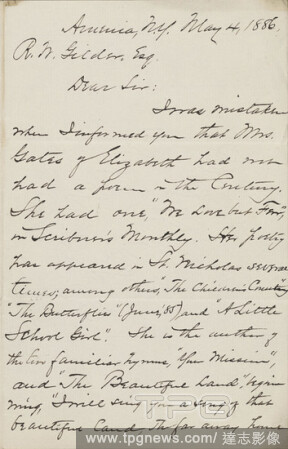 Amenia, N.Y. May 4, 1886.
R. W. Gilder, Esq.
Dear Sir:
I was mistaken
when I informed you that Mrs.
Gates of Elizabeth had not
had a poem in the Century.
She had one, "We Love but Few",
in Scribner's Monthly. Her poetry
has appeared in St. Nicholas several
times; among others, "The Children's
"The Butterflies" (June, 85) and "A Little
School Girl". She is the author of
the two familiar hymns, "Your Mission",
and "The Beautiful Land", begin
ning, "I will sing you a song of that
beautiful land, the far away home
TPG
www.tpgnews.com / 達志影像